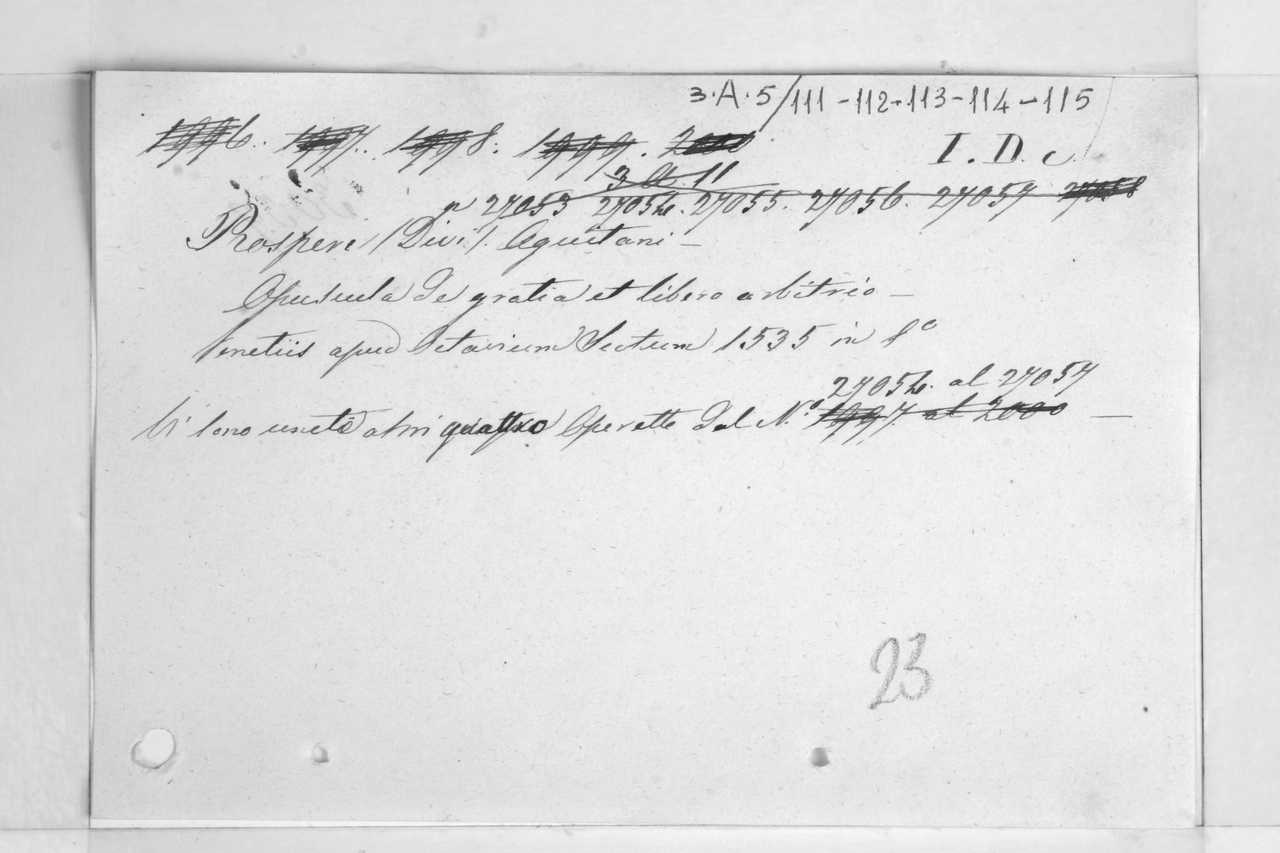 3.A.5/111-112-113-114-115
1996. 1997. 1998. 1999. 2000
I. D. c.
3 A. 11
n 27053 27054. 27055. 27056. 27057 27058
Prosperi (Divi). Aquitani -
Opuscula de gratia et libero arbitrio -
Venetiis apud Octavium Scotum 1535 in 8°
27054. al 27057
Vi sono unite altri quattro Operette dal N.° 1997. al 2000 —
23